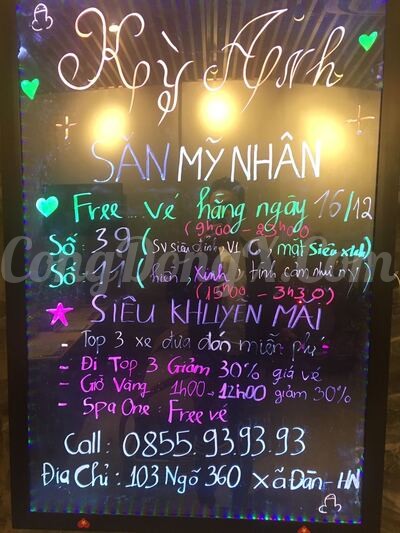 Kỳ Anh
SĂN MỸ NHÂN
Free vé hằng ngày 16/12
(9h00 - 23h00
Số: 39 (SV siêu đỉnh VL, mặt siêu xinh)
Số 41 (hiền, Xinh, tình cảm như ny)
(15h00 - 3h30)
SIÊU KHUYẾN MÃI
- Top 3 xe đưa đón miễn phí
- Đi Top 3 Giảm 30% giá vé
- Giờ Vàng 1h00 - 12h00 giảm 30%
- Spa One: Free vé
Call: 0855.93.93.93
Địa Chỉ: 103 Ngõ 360 xã Đàn - HN